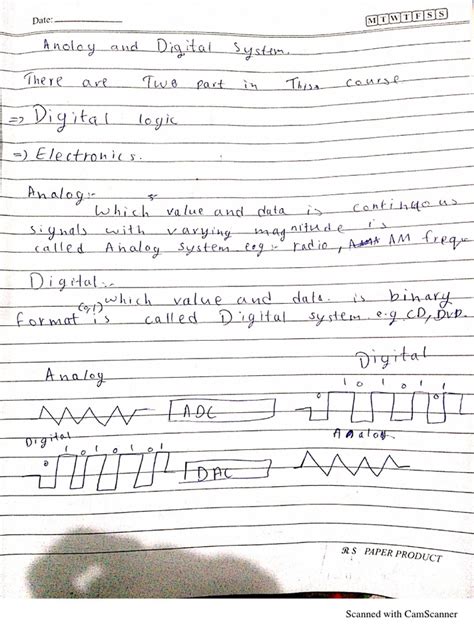 Date:
M T W T F S S
Analog and Digital System.
There are Two part in This course
=> Digital logic
=> Electronics.
Analog:-
Which value and data is continuous
signals with varying magnitude is
called Analog system e.g:- radio, AM freq
Digital:-
which value and data. is binary
format (0,1) is called Digital system e.g CD, DVD.
Digital
Analog
0 1 0 1 0 1
ADC
Digital
Analog
0 1 0 1 0 1
DAC
RS PAPER PRODUCT
Scanned with CamScanner